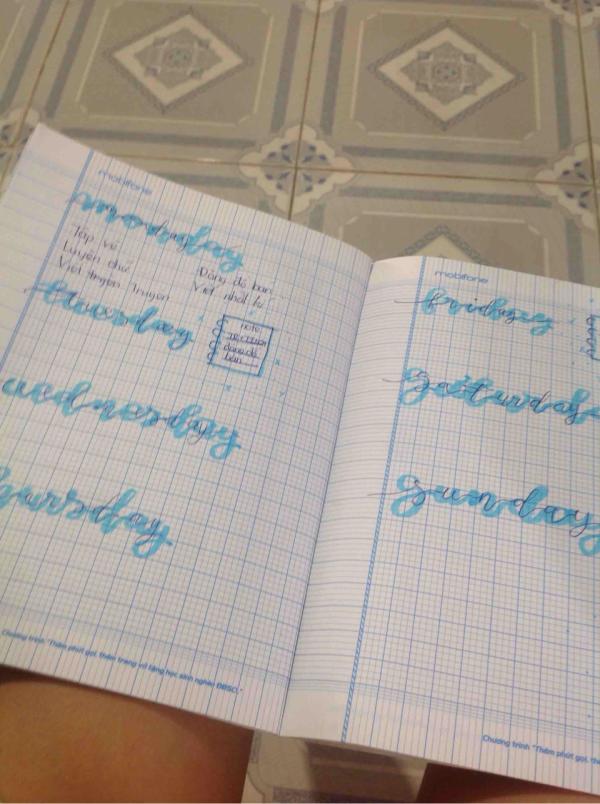 mobifone
monday
Tập vẽ
Luyện chữ
Viết truyện
Đăng đồ bán
Viết nhật kí
tuesday
note
đăng đồ
bán
wednesday
thursday
Chương trình "Thêm phút gọi, thêm trang vở tặng học sinh nghèo ĐBSCL"
mobifone
friday
saturday
sunday
Chương trình "Thêm phút gọi, thê